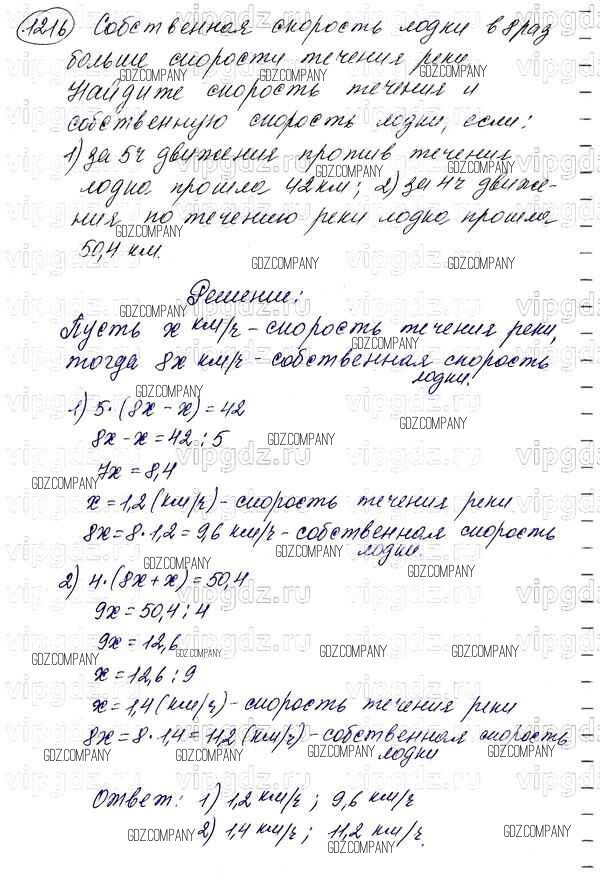 1216 Собственная скорость лодки в 8 раз
больше скорости течения реки.
Найдите скорость течения и
собственную скорость лодки, если:
1) за 5ч движения против течения
лодка прошла 42 км; 2) за 4ч движе-
ния по течению реки лодка прошла
50,4 км.
Решение:
Пусть х км/ч - скорость течения реки,
тогда 8х км/ч - собственная скорость
лодки.
1) 5·(8х - х) = 42
8х - х = 42 : 5
7х = 8,4
х = 1,2 (км/ч) - скорость течения реки
8х = 8·1,2 = 9,6 км/ч - собственная скорость
лодки.
2) 4·(8х + х) = 50,4
9х = 50,4 : 4
9х = 12,6
х = 12,6 : 9
х = 1,4 (км/ч) - скорость течения реки
8х = 8·1,4 = 11,2 (км/ч) - собственная скорость
лодки
Ответ: 1) 1,2 км/ч ; 9,6 км/ч
2) 1,4 км/ч ; 11,2 км/ч.
GDZ.COMPANY
vipgdz.ru